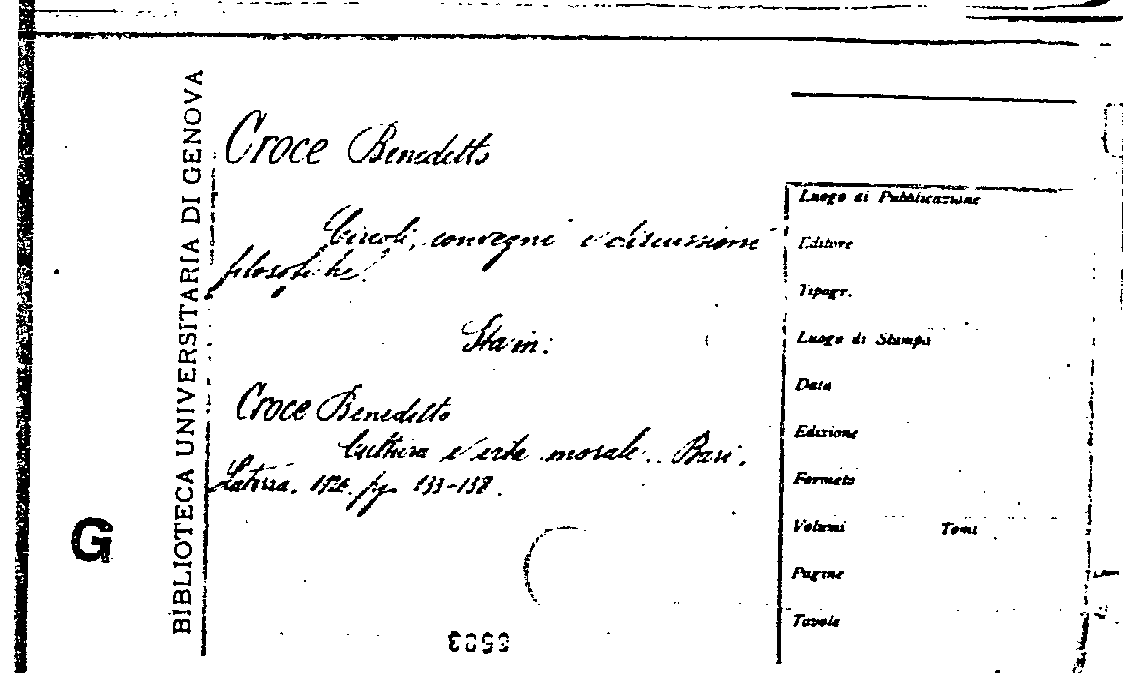 BIBLIOTECA UNIVERSITARIA DI GENOVA
G
Croce Benedetto
Circoli, convegni e discussioni
filosofiche.
Sta in:
Croce Benedetto
Cultura e vita morale. Bari.
Laterza. 1926. pg. 133-138.
Luogo di Pubblicazione
Editore
Tipogr.
Luogo di Stampa
Data
Edizione
Formato
Volumi Tomi
Pagine
Tavole